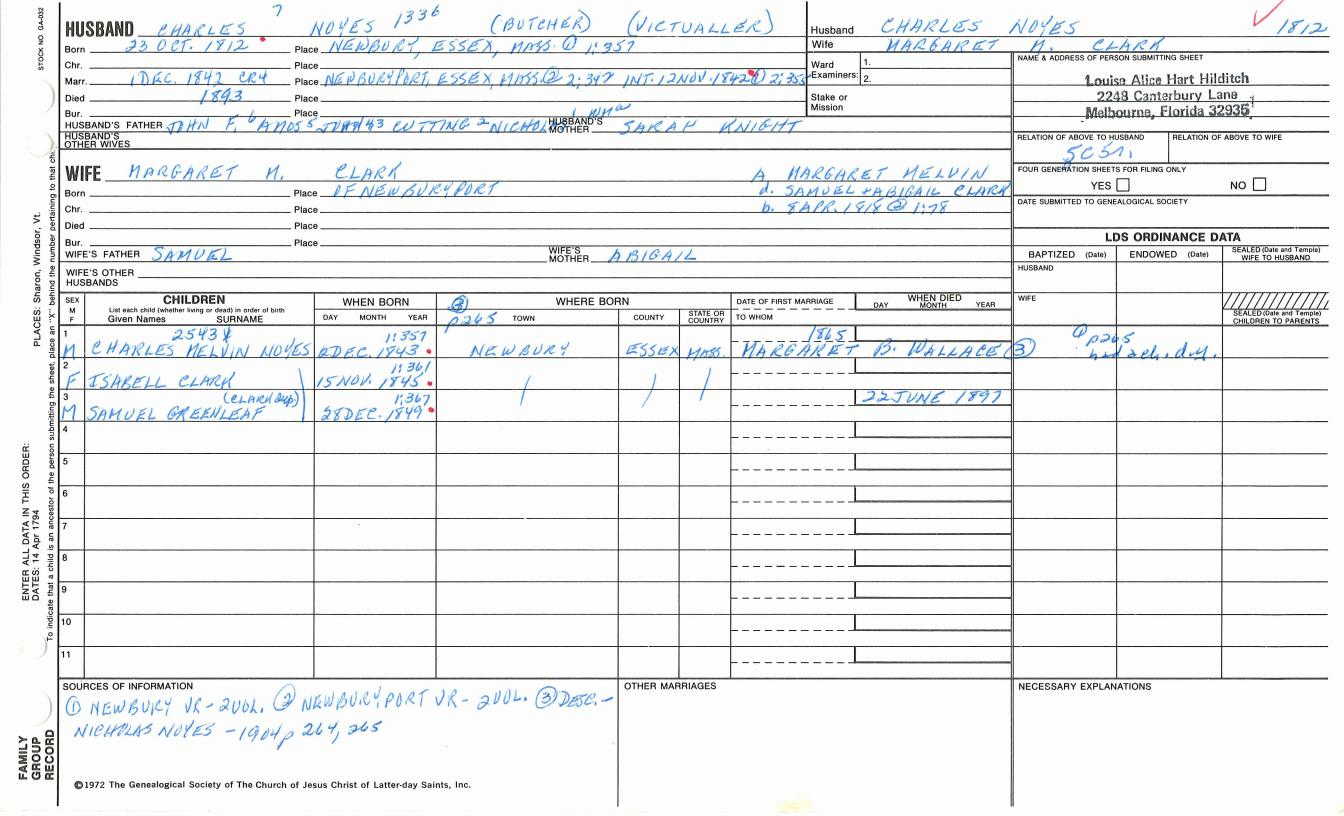 STOCK NO. GA-032
HUSBAND CHARLES 7 NOYES 1336 (BUTCHER) (VICTUALLER)
Born 23 OCT. 1812 Place NEWBURY, ESSEX, MASS. ① 1:357
Chr. Place
Marr. 1 DEC. 1842 CR4 Place NEWBURYPORT, ESSEX, MASS. ② 2:347 INT. 12 NOV. 1842 ① 2:355
Died 1893 Place
Bur. Place
HUSBAND'S FATHER JOHN F. 6 AMOS 5 CUTTING 2 NICHOLAS 1 WMa HUSBAND'S MOTHER SARAH KNIGHT
HUSBAND'S OTHER WIVES
Husband CHARLES NOYES 1812
Wife MARGARET M. CLARK
Ward Examiners: 1.
2.
Stake or Mission
NAME & ADDRESS OF PERSON SUBMITTING SHEET
Louise Alice Hart Hilditch
2248 Canterbury Lane
Melbourne, Florida 32935
RELATION OF ABOVE TO HUSBAND RELATION OF ABOVE TO WIFE
5C5R
FOUR GENERATION SHEETS FOR FILING ONLY
YES NO
DATE SUBMITTED TO GENEALOGICAL SOCIETY
WIFE MARGARET M. CLARK A. MARGARET MELVIN
Born Place OF NEWBURYPORT d. SAMUEL + ABIGAIL CLARK
Chr. Place b. 8 APR. 1818 @ 1:78
Died Place
Bur. Place
WIFE'S FATHER SAMUEL WIFE'S MOTHER ABIGAIL
WIFE'S OTHER HUSBANDS
LDS ORDINANCE DATA
BAPTIZED (Date) ENDOWED (Date) SEALED (Date and Temple) WIFE TO HUSBAND
HUSBAND
WIFE
SEALED (Date and Temple) CHILDREN TO PARENTS
SEX M F CHILDREN List each child (whether living or dead) in order of birth Given Names SURNAME
WHEN BORN DAY MONTH YEAR
③ p265 WHERE BORN TOWN COUNTY STATE OR COUNTRY
DATE OF FIRST MARRIAGE TO WHOM
WHEN DIED DAY MONTH YEAR
1 2543 1:357 1865 ① p265
M CHARLES MELVIN NOYES DEC. 1843 NEWBURY ESSEX MASS. MARGARET B. WALLACE ③ had a ch. d.y.
2 1:361
F ISABELL CLARK 15 NOV. 1845
3 (CLARK dup) 1:367 22 JUNE 1897
M SAMUEL GREENLEAF 28 DEC. 1849
4
5
6
7
8
9
10
11
SOURCES OF INFORMATION
① NEWBURY VR - 2 VOL. ② NEWBURYPORT VR - 2 VOL. ③ DESC. -
NICHOLAS NOYES - 1904 p 264, 265
OTHER MARRIAGES
NECESSARY EXPLANATIONS
©1972 The Genealogical Society of The Church of Jesus Christ of Latter-day Saints, Inc.
PLACES: Sharon, Windsor, Vt.
ENTER ALL DATA IN THIS ORDER:
DATES: 14 Apr 1794
To indicate that a child is an ancestor of the person submitting the sheet, place an "X" behind the number pertaining to that ch
FAMILY GROUP RECORD